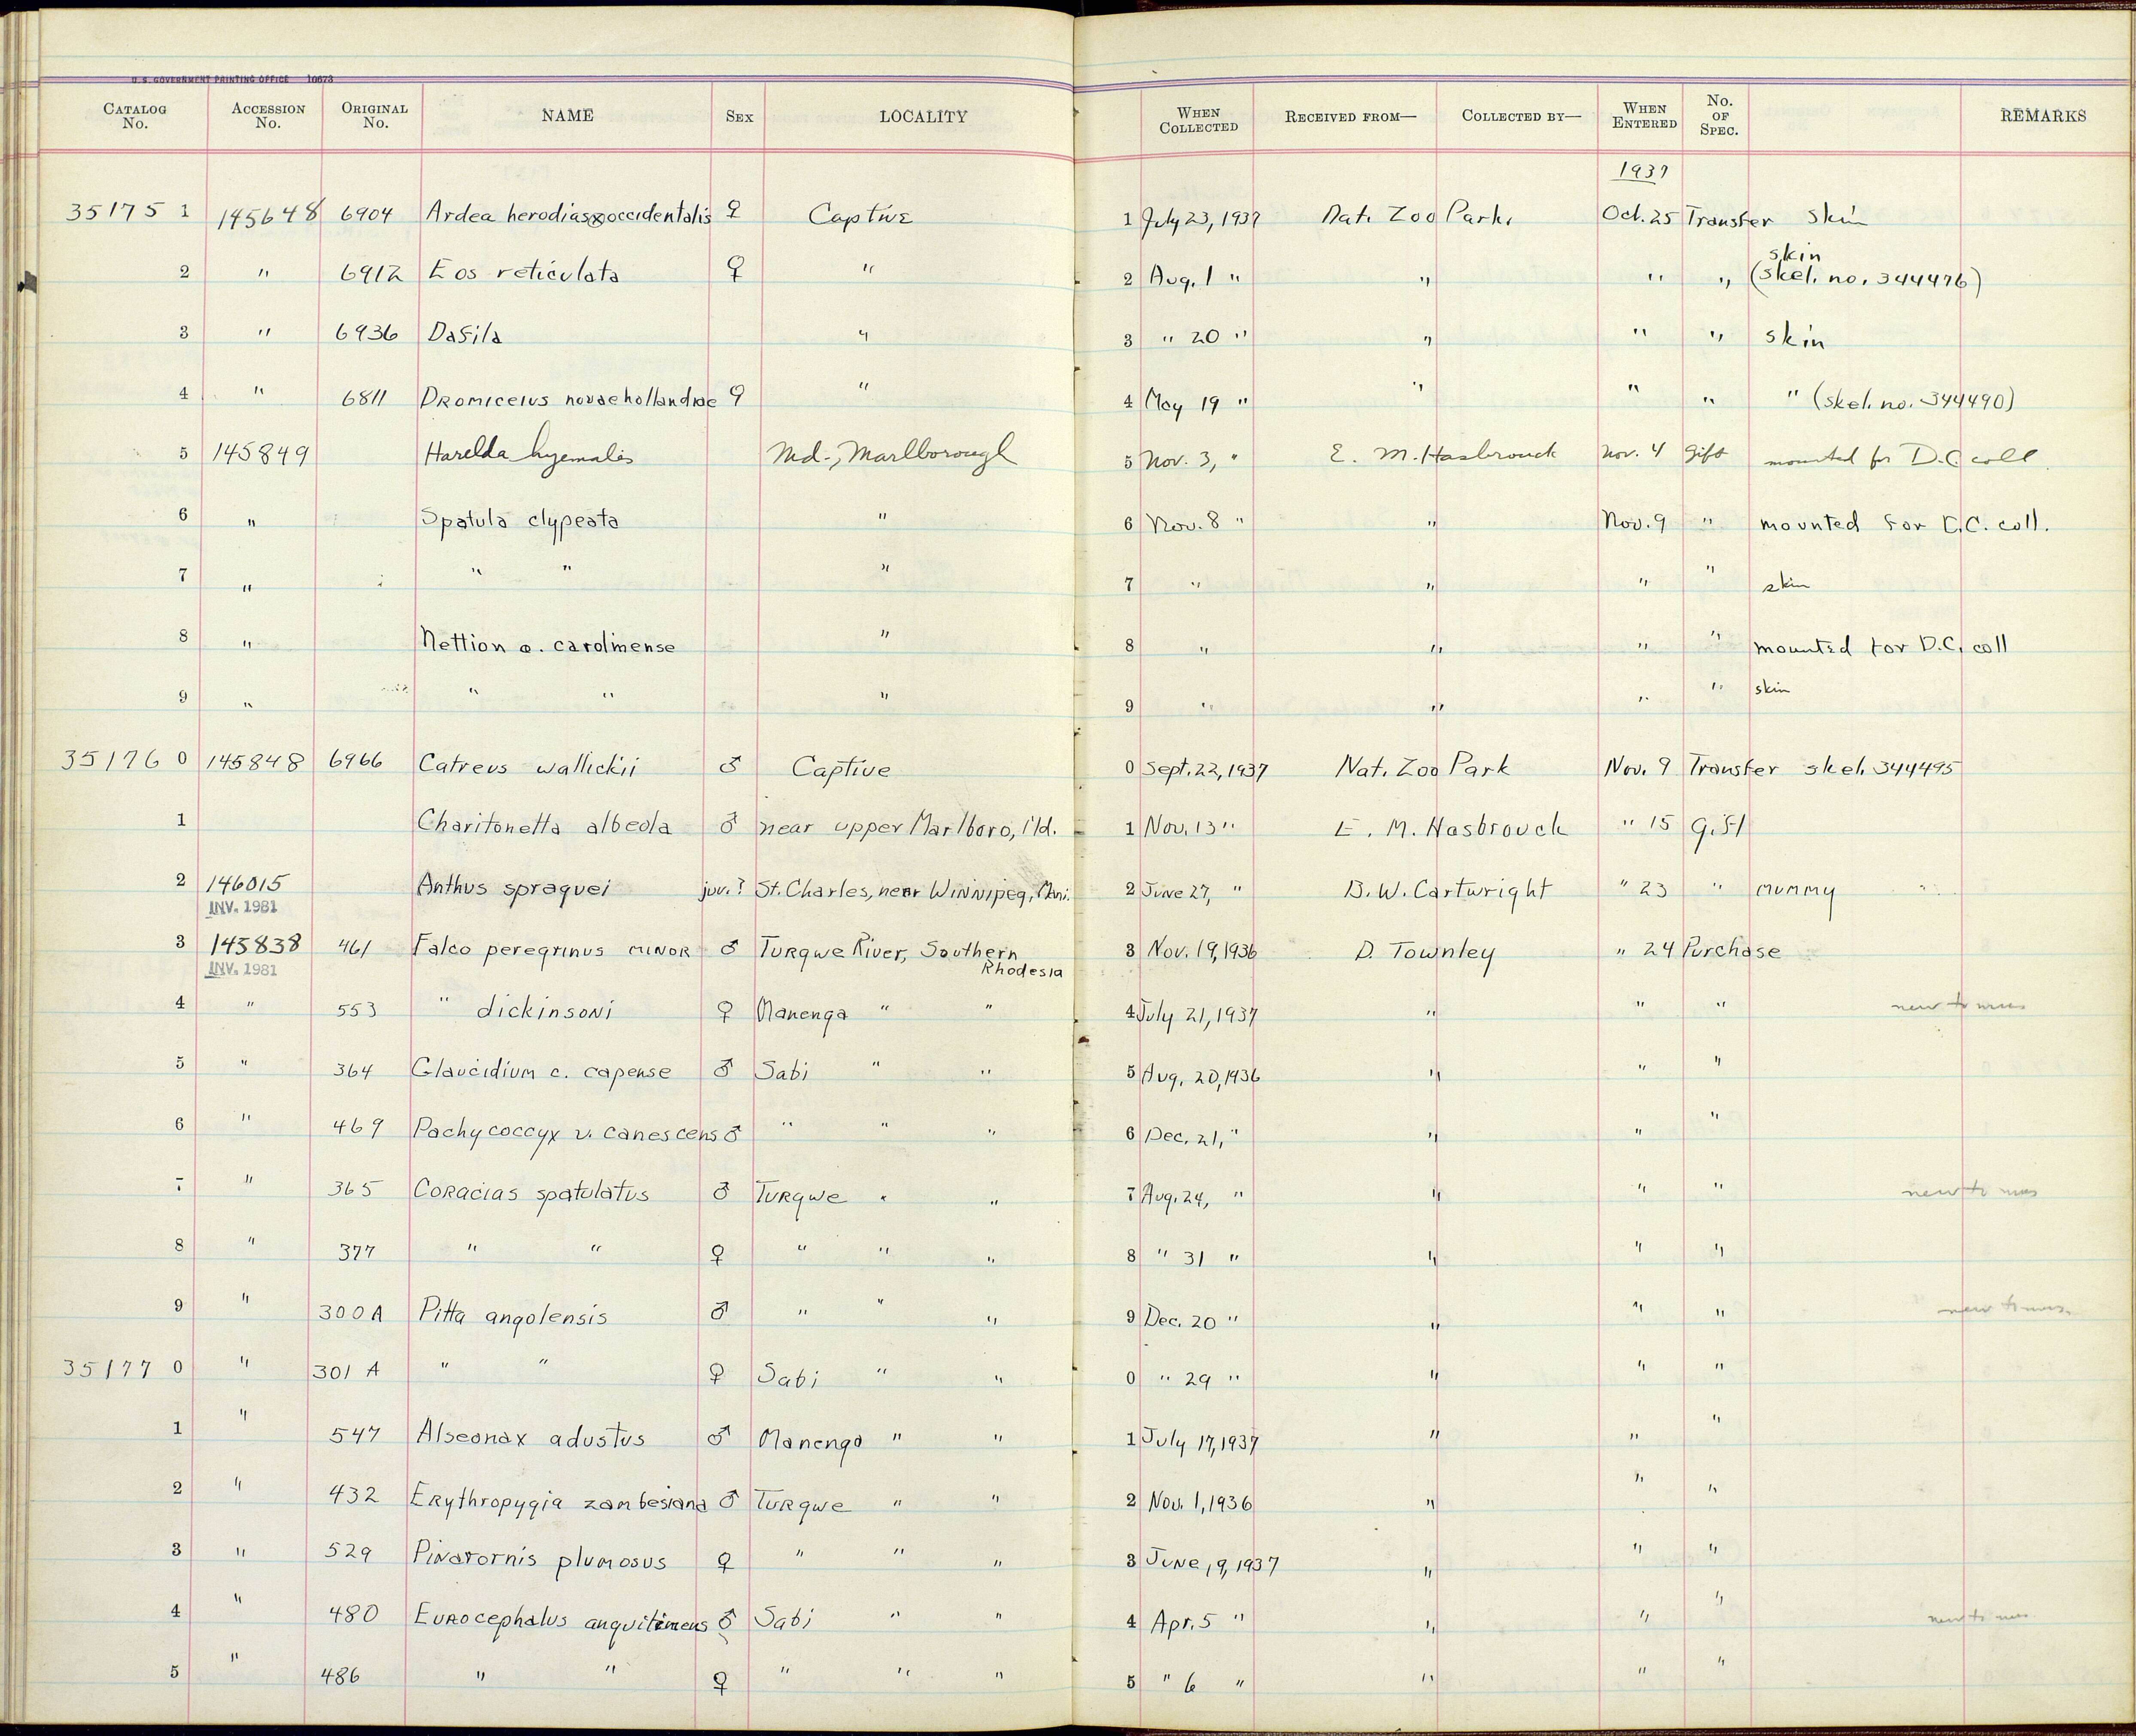 U.S. GOVERNMENT PRINTING OFFICE 10673
CATALOG No. ACCESSION No. ORIGINAL No. NAME SEX LOCALITY WHEN COLLECTED RECEIVED FROM— COLLECTED BY— WHEN ENTERED No. OF SPEC. REMARKS
1937
35175 1 145648 6904 Ardea herodias x occidentalis ♀ Captive 1 July 23, 1937 Nat. Zoo Park. Oct. 25 Transfer skin
skin
2 " 6912 Eos reticulata ♀ " 2 Aug. 1 " " " " (skel. no. 344476)
3 " 6936 Dafila " 3 " 20 " " " " skin
4 " 6811 Dromiceius novaehollandiae ♀ " 4 May 19 " " " " " (skel. no. 344490)
5 145849 Harelda hyemalis Md., Marlborough 5 Nov. 3, " E. M. Hasbrouck Nov. 4 Gift mounted for D.C. coll.
6 " Spatula clypeata " 6 Nov. 8 " " Nov. 9 " mounted for D.C. coll.
7 " " " " 7 " " " " skin
8 " Nettion c. carolinense " 8 " " " " mounted for D.C. coll
9 " " " " 9 " " " " skin
35176 0 145848 6966 Catreus wallickii ♂ Captive 0 Sept. 22, 1937 Nat. Zoo Park Nov. 9 Transfer skel. 344495
1 Charitonetta albeola ♂ near upper Marlboro, Md. 1 Nov. 13 " E. M. Hasbrouck " 15 Gift
2 146015 Anthus spraguei juv.? St. Charles, near Winnipeg, Mani. 2 June 27, " B. W. Cartwright " 23 " mummy
INV. 1981
3 145838 461 Falco peregrinus minor ♂ Turgwe River, Southern Rhodesia 3 Nov. 19, 1936 D. Townley " 24 Purchase
INV. 1981
4 " 553 " dickinsoni ♀ Manenga " " 4 July 21, 1937 " " " new to mus
5 " 364 Glaucidium c. capense ♂ Sabi " " 5 Aug. 20, 1936 " " "
6 " 469 Pachycoccyx v. canescens ♂ " " " 6 Dec. 21, " " " "
7 " 365 Coracias spatulatus ♂ Turgwe " " 7 Aug. 24, " " " " new to mus
8 " 377 " " ♀ " " " 8 " 31 " " " "
9 " 300 A Pitta angolensis ♂ " " " 9 Dec. 20 " " " " new to mus.
35177 0 " 301 A " " ♀ Sabi " " 0 " 29 " " " "
1 " 547 Alseonax adustus ♂ Manenga " " 1 July 17, 1937 " " "
2 " 432 Erythropygia zambesiana ♂ Turgwe " " 2 Nov. 1, 1936 " " "
3 " 529 Pinarornis plumosus ♀ " " " 3 June 19, 1937 " " "
4 " 480 Eurocephalus anguitimens ♂ Sabi " " 4 Apr. 5 " " " " new to mus
5 " 486 " " ♀ " " " 5 " 6 " " " "